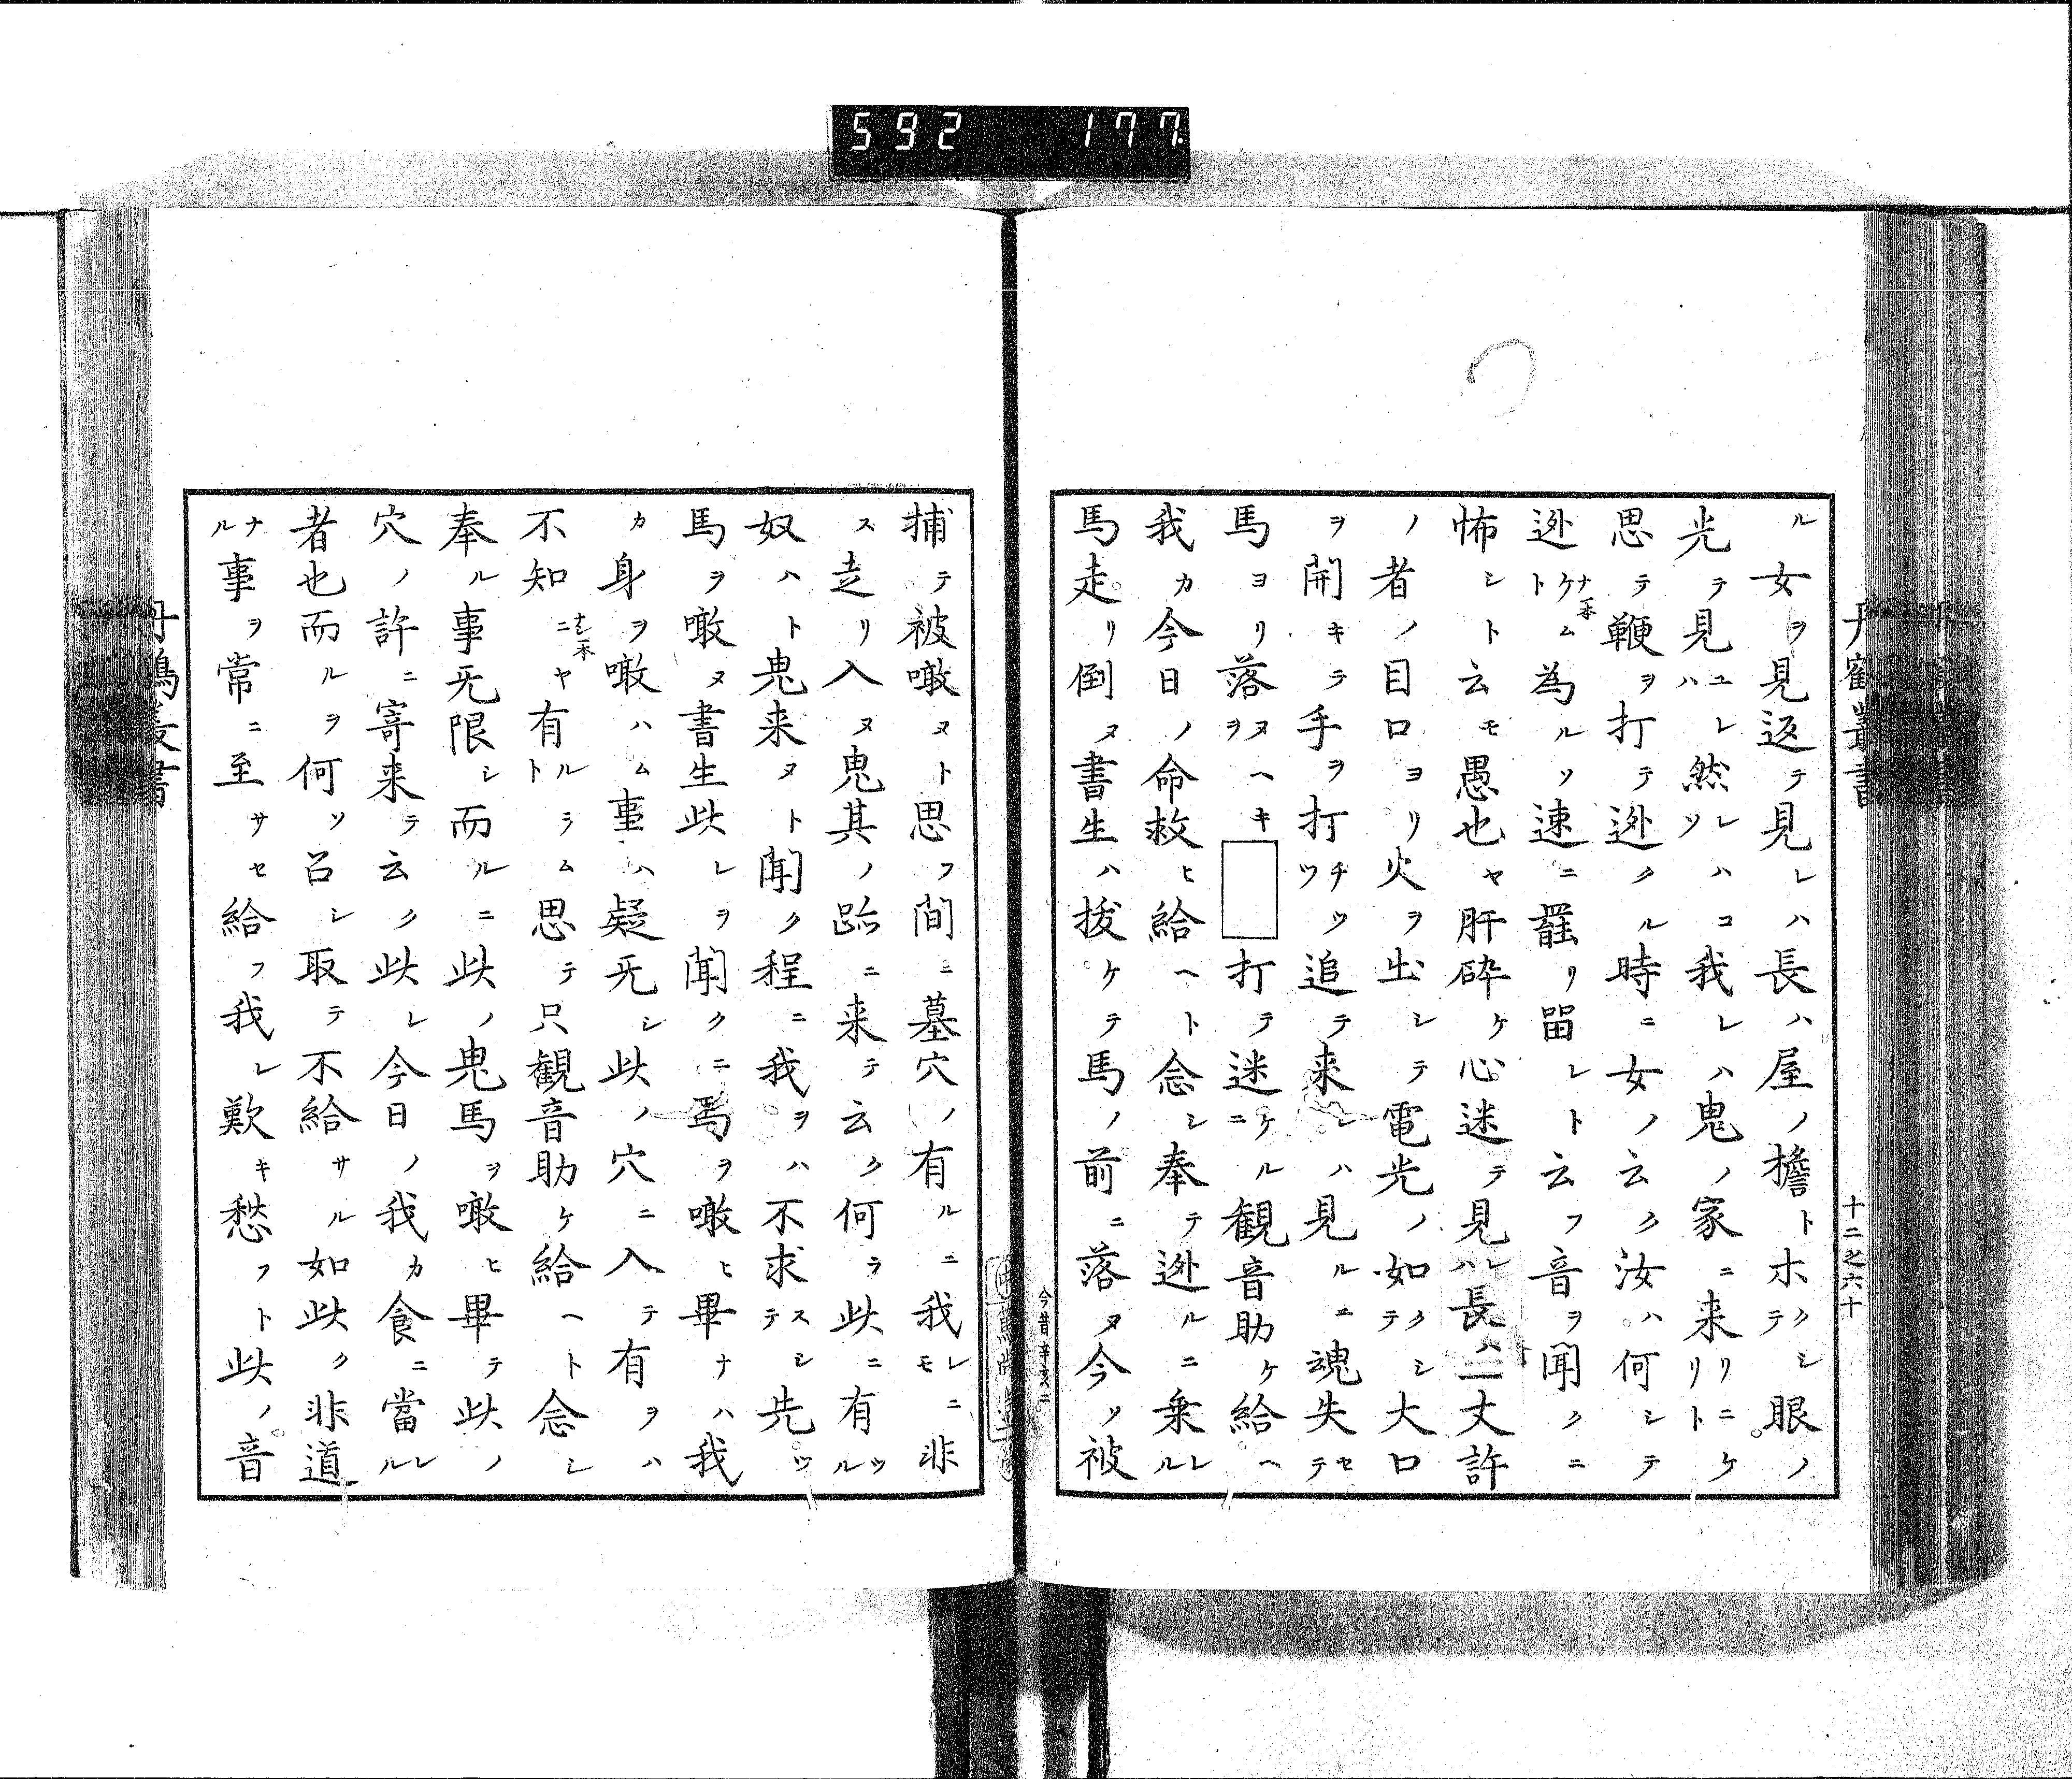 592 177
丹鶴叢書
十二之六十
ル女ヲ見返テ見レハ長ハ屋ノ檐トホクシテ眼ノ
光テ見ユレハ然レハコソ我レハ鬼ノ家ニ来リニケリト
思テ鞭ヲ打テ迯クル時ニ女ノ云ク汝ハ何シテ
迯ナ一本ケムト為ルソ速ニ罷リ留レト云フ音ヲ聞クニ
怖シト云モ愚也ヤ肝砕ケ心迷テ見レハ長ハ二丈許
ノ者ノ目口ヨリ火ヲ出シテ電光ノ如クシテ大口
ヲ開キラ手ヲ打チツツ追テ来レハ見ルニ魂失セテ
馬ヨリ落ヌヘキヲ□打テ迷ケルニ観音助ケ給ヘ
我カ今日ノ命救ヒ給ヘト念シ奉テ迯ルニ乗レル
馬走リ倒ヌ書生ハ抜ケテ馬ノ前ニ落ヌ今ソ被
今昔辛亥二
捕テ被噉ヌト思フ間ニ墓穴ノ有ルニ我レニモ非
ス走リ入ヌ鬼其ノ跡ニ来テ云ク何ラ此ニ有ツル
奴ハト鬼来ヌト聞ク程ニ我ヲハ不求スシテ先ツ
馬ヲ噉ヌ書生此レヲ聞クニ馬ヲ噉ヒ畢ナハ我
カ身ヲ噉ハム事ハ疑无シ此ノ穴ニ入テ有ヲハ
不知ニヤ有ルラムト思テ只観音助ケ給ヘト念シ
奉ル事无限シ而ルニ此ノ鬼馬ヲ噉ヒ畢テ此ノ
穴ノ許ニ寄来テ云ク此レ今日ノ我カ食ニ當レル
者也而ルヲ何ソ召シ取テ不給サル如此ク非道
ナル事ヲ常ニ至サセ給フ我レ歎キ愁フト此ノ音
丹鶴叢書